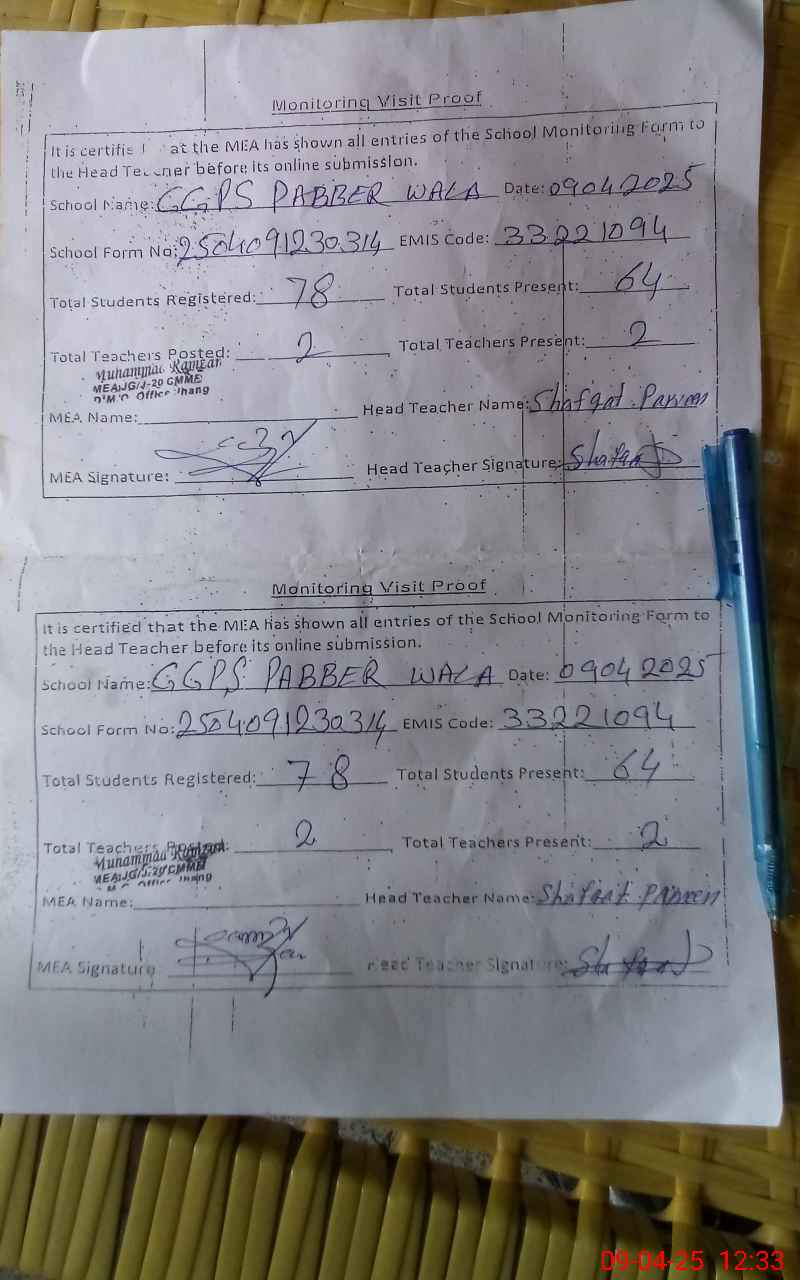 Monitoring Visit Proof
It is certifie at the MEA has shown all entries of the School Monitoring Form to
the Head Teacher before its online submission.
School Name: GGPS PABBER WALA Date: 09042025
School Form No: 2504091230314 EMIS Code: 33221094
Total Students Registered: 78 Total Students Present: 64
Total Teachers Posted: 2 Total Teachers Present: 2
Muhammad Ramzan
MEA/JG/J-29 CMME
Office Jhang
MEA Name: Head Teacher Name: Shafqat Parveen
MEA Signature: Head Teacher Signature:
Monitoring Visit Proof
It is certified that the MEA has shown all entries of the School Monitoring Form to
the Head Teacher before its online submission.
School Name: GGPS PABBER WALA Date: 09042025
School Form No: 2504091230314 EMIS Code: 33221094
Total Students Registered: 78 Total Students Present: 64
Total Teachers Posted: 2 Total Teachers Present: 2
Muhammad Ramzan
MEA/JG/J-29 CMME
Office Jhang
MEA Name: Head Teacher Name: Shafqat Parveen
MEA Signature Head Teacher Signature:
09-04-25 12:33